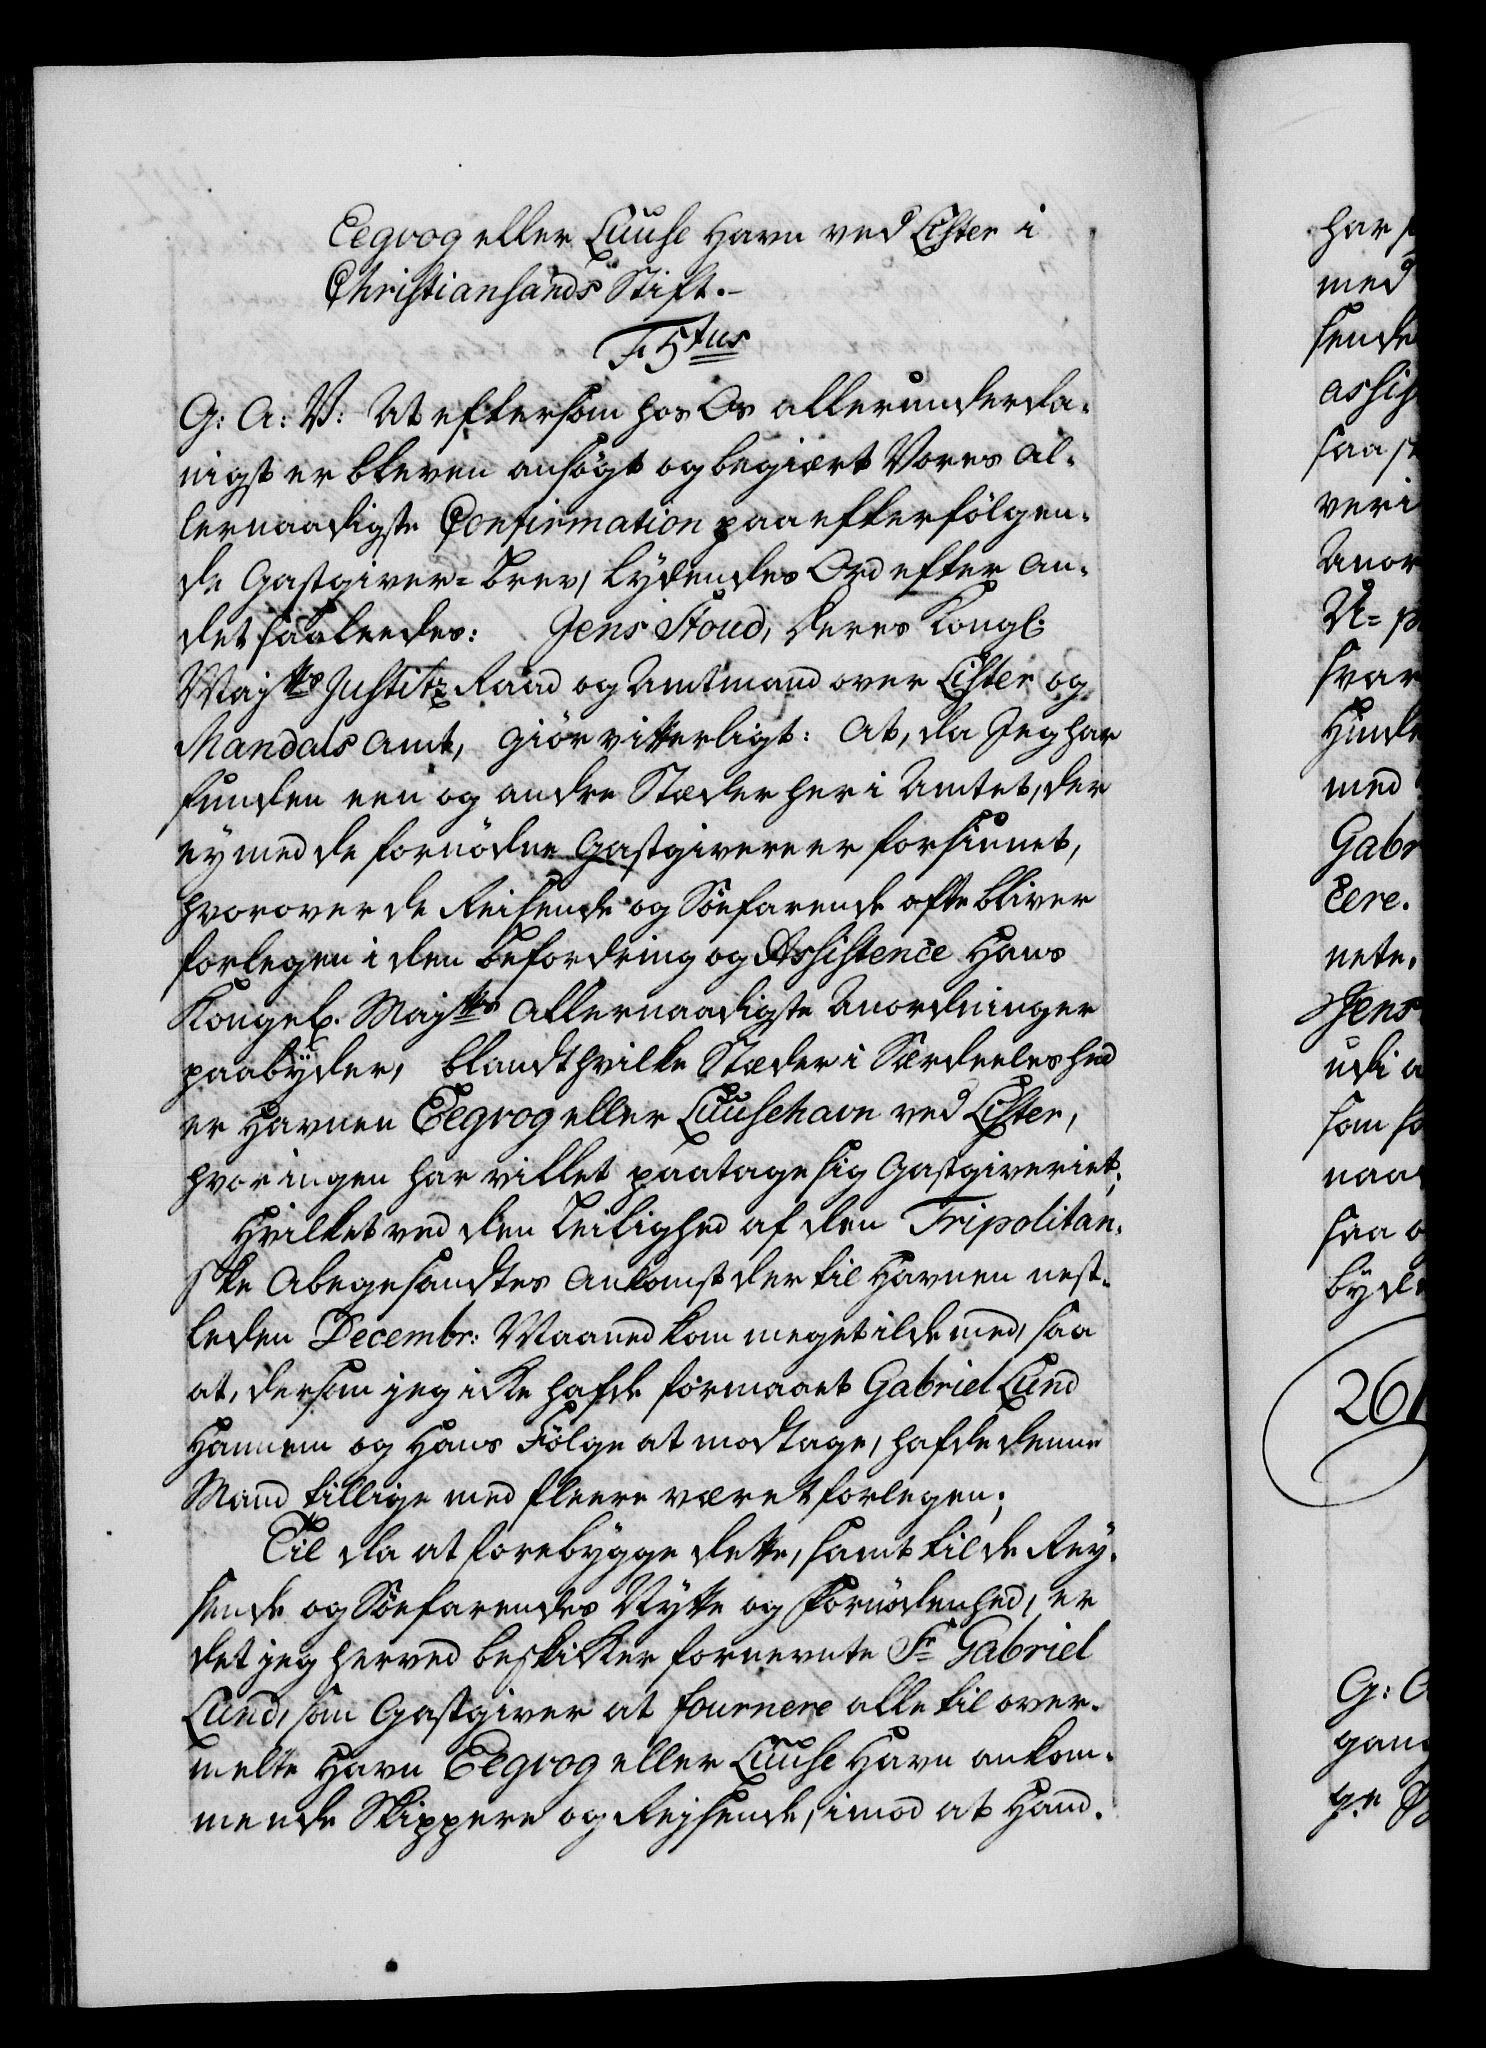 Eegvog eller Luuse Havn ved Lister i
Christiansands Stift.-
F 5tus
G: A: V: At eftersom hos Os allerunderda-
nigst er bleven ansøgt og begiært Vores Al-
lernaadigste Confirmation paa efterfølgen-
de Gastgiver-Brev, lydendes Ord efter An-
det saaleedes: Jens Stoud, Deres Kongl:
Mayts Justitz Raad og Amtmand over Lister og
Mandals Amt, Giør vitterligt: At, da Jeg har
funden een og andre Stæder her i Amtet, der
ey med de fornødne Gastgivere er forsiunet,
hvorover de Reisende og Søefarende ofte bliver
forlegen i den Befordring og Assistence Hans
Kongel. Mayts Allernaadigste Anordninger
paabyder, blandt hvilke Stæder i Særdeeleshed
er Havnen Eegvog eller Luusehavn ved Lister,
hvor ingen har villet paatage sig Gastgiveriet;
Hvilket ved den Leilighed af den Tripolitan-
ske Abegesandtes Ankomst der til Havnen nest-
leden Decembr: Maaned kom meget ilde med, saa
at, dersom jeg icke hafde formaaet Gabriel Lund
Hannem og Hans Følge at modtage, hafde denne
Mand tillige med fleere været forlegen;
Til da at forebygge dette, samt til de Rey-
sende og Søefarendes Nytte og Fornødenhed, er
det jeg herved beskikker fornevnte Sr Gabriel
Lund, som Gastgiver at fournere alle til over-
melte Havn Eegvog eller Luuse Havn ankom-
mende Skippere og Reysende, imod at Hand-
har
med
sende
saa
veri
Anor
svar
Hinde
med
Gabr
cere.
nete.
Jens
udi a
som so
naa
saa o
byde
261
G:
gang
ge